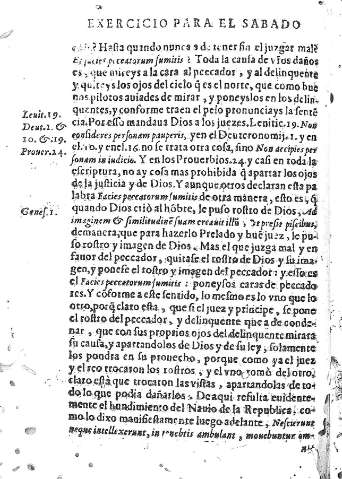 EXERCICIO PARA EL SABADO
Hasta quando nunca a de tener fin el juzgar mal?
Et facies peccatorum sumitis? Toda la causa de vros daños
es, que mireys a la cara al peccador, y al delinquente
y quiteys los ojos del cielo q̃ es el norte, que como bue
nos pilotos auiades de mirar, y poneyslos en los delin-
quentes, y conforme traen el pelo pronunciays la sentẽ
cia. Por esso mandaua Dios a los juezes. Leuitic. 19. Non
consideres personam pauperis, yen el Deuteronomij. 1. y en
el. 10. y enel. 16. no se trata otra cosa, sino Non accipies per
sonam in iudicio. Y en los Prouerbios. 24. y casi en toda la
escriptura, no ay cosa mas prohibida q̃ apartar los ojos
de la justicia y de Dios. Y aunque otros declaran esta pa
labra Facies peccatorum sumitis de otra manera, esto es, q̃
quando Dios criò al hõbre, le puso rostro de Dios, Ad
imaginem & similitudinẽ suam creauit illũ, vt præsit piscibus,
demanera, que para hazerlo Prelado y buẽ juez, le pu-
so rostro y imagen de Dios. Mas el que juzga mal y en
fauor del peccador, quitase el rostro de Dios y su ima-
gen, y ponese el rostro y imagen del peccador: y esso es
el Facies peccatorum sumitis: poneysos caras de peccado
res. Y cõforme a este sentido, lo mesmo es lo vno que lo
otro, porq̃ claro esta, que si el juez y principe, se pone
el rostro del peccador, y delinquente que a de conde-
nar, que con sus proprios ojos del delinquente mirara
su causa, y apartandolos de Dios y de su ley, solamente
los pondra en su prouecho, porque como ya el juez
y el reo trocaron los rostros, y el vno tomò del otro,
claro està que trocaron las vistas, apartandolas de to-
do lo que podia dañarlos. De aqui resulta euidente-
mente el hundimiento del Nauio de la Republica, co-
mo lo dixo manifiestamente luego adelante, Nescierunt
neque intellexerunt, in tenebris ambulant, mouebuntur om-
Leuit. 19.
Deut. 1. &
10. & 19.
Prouer. 24.
Genes. 1.